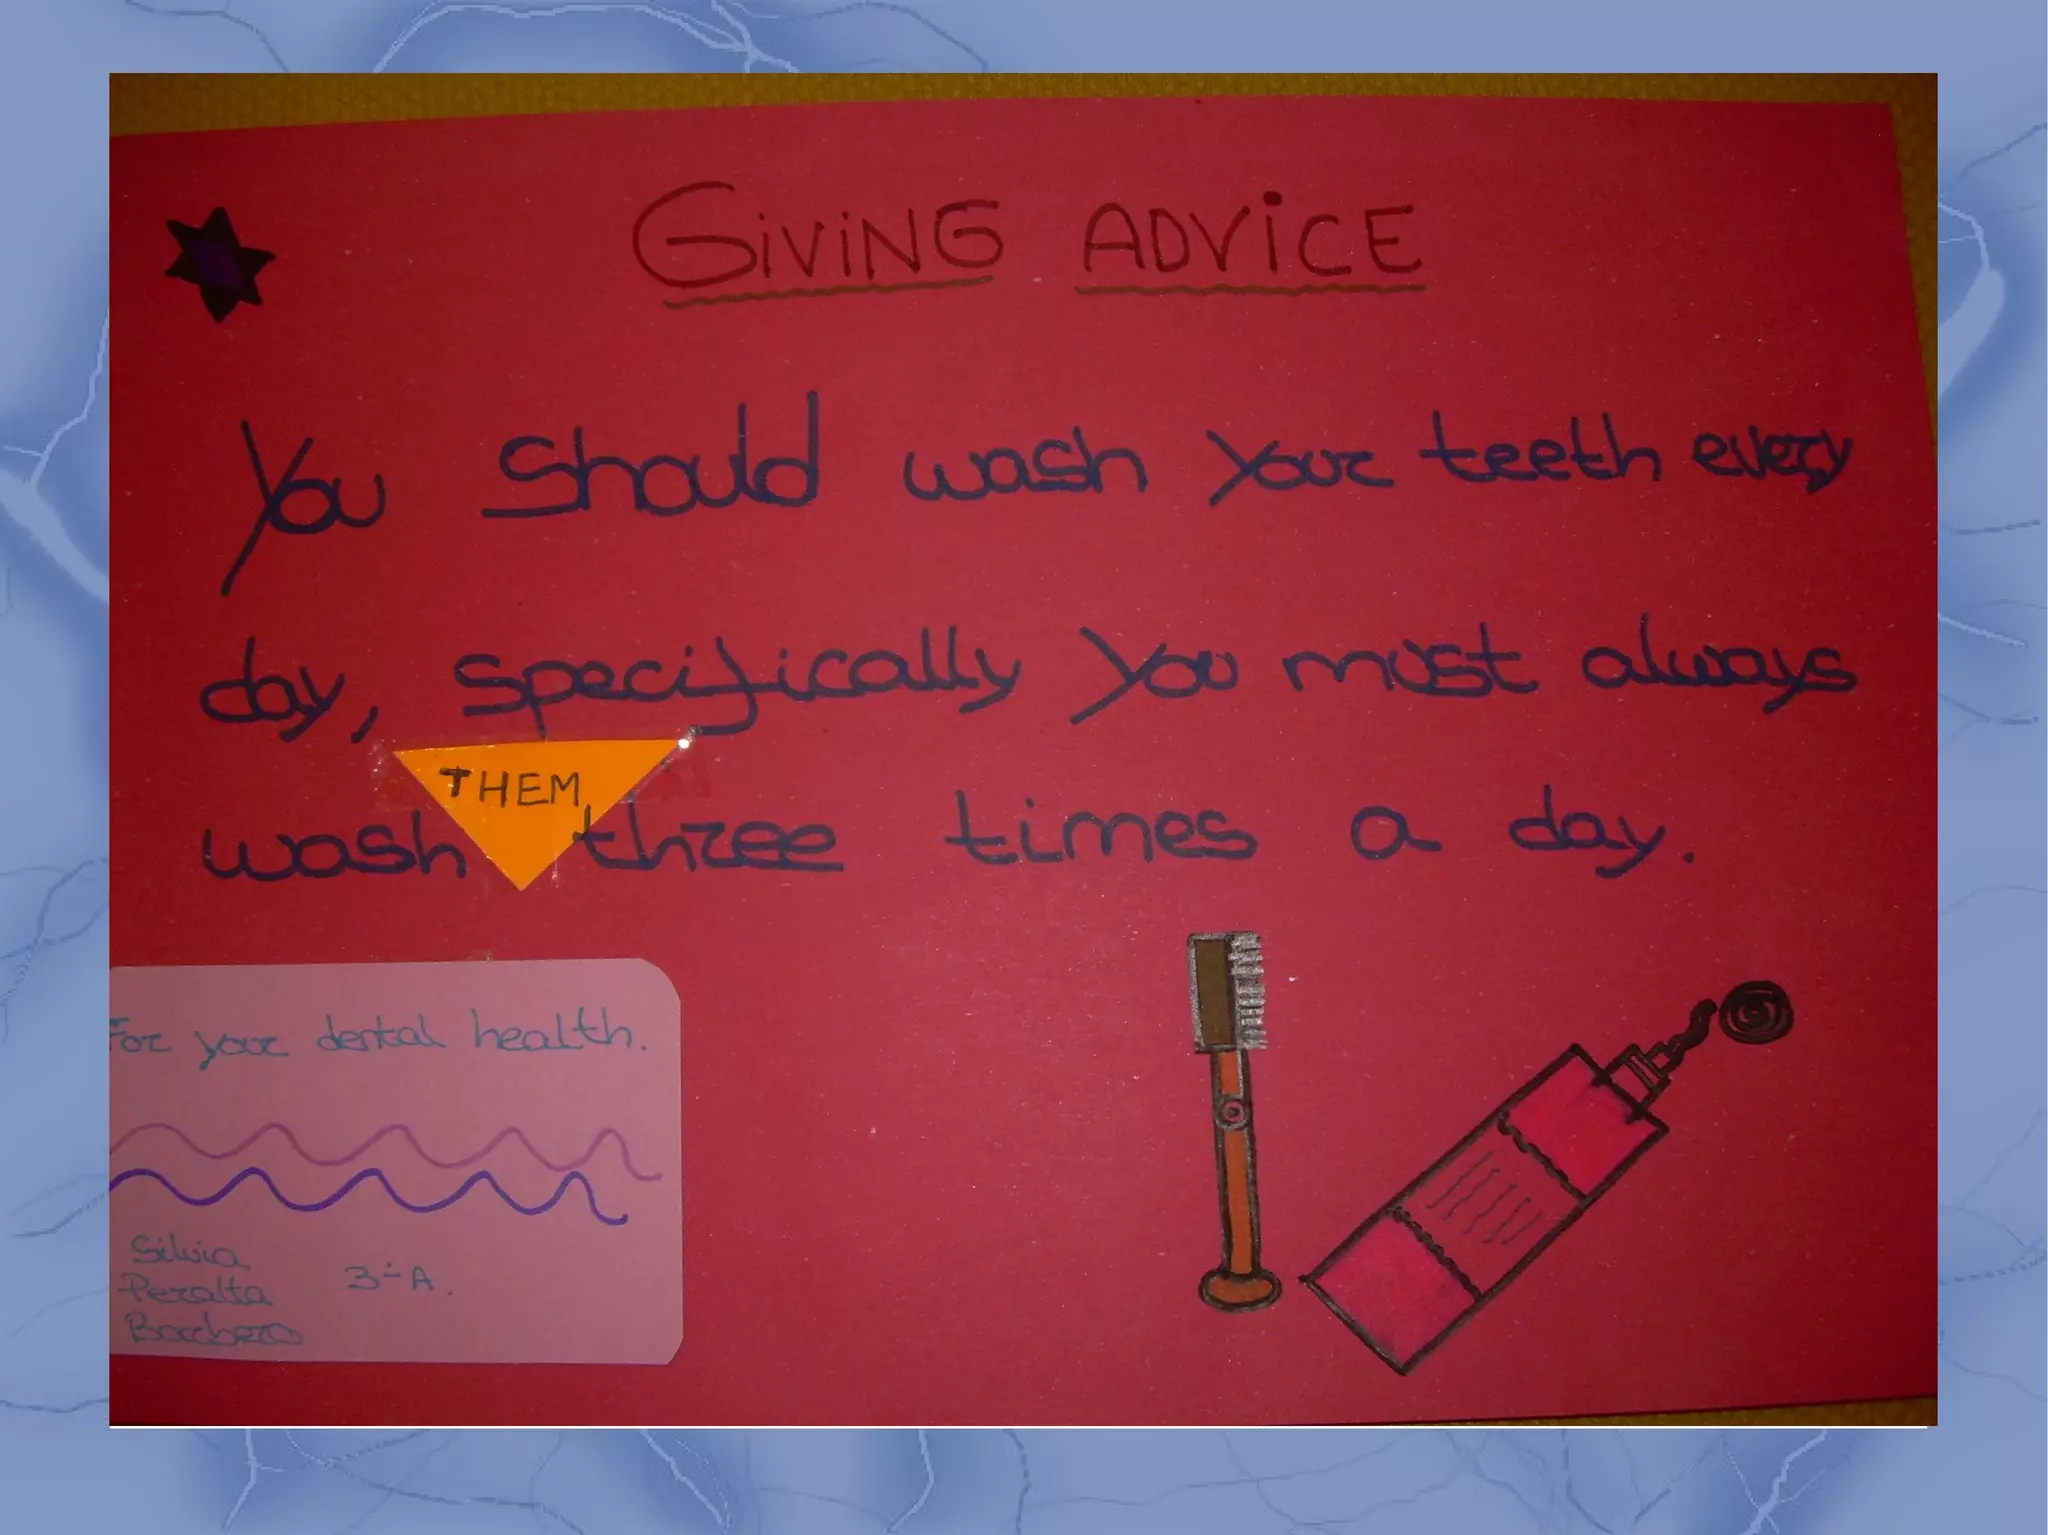 GiViNG ADViCE
You should wash your teeth every
day, specifically you must always
THEM
wash three times a day.
For your dental health.
Silvia
Peralta 3º A.
Barbero